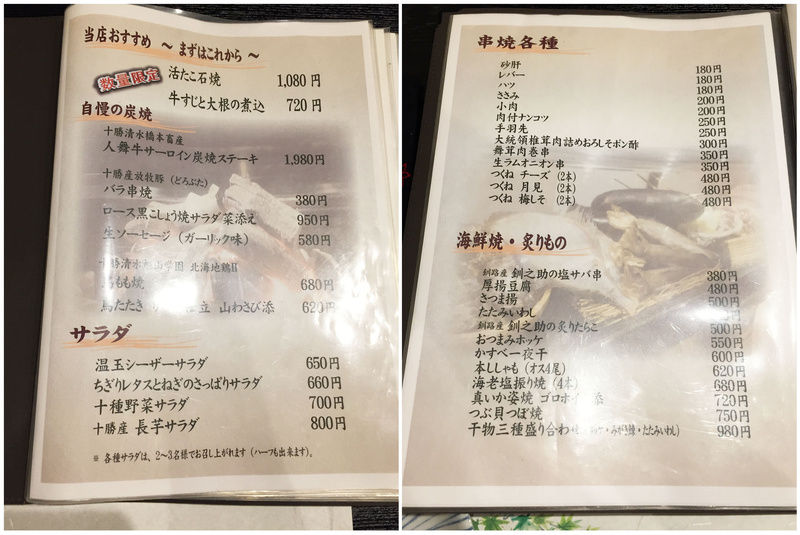 当店おすすめ ～ まずはこれから ～
数量限定
活たこ石焼 1,080 円
牛すじと大根の煮込 720 円
自慢の炭焼
十勝清水橋本畜産
人舞牛サーロイン炭焼ステーキ 1,980円
十勝産放牧豚（どろぶた）
バラ串焼 380円
ロース黒こしょう焼サラダ菜添え 950円
生ソーセージ（ガーリック味） 580円
十勝清水 山学園 北海地鶏Ⅱ
もも焼 680円
たたき 立 山わさび添 620
サラダ
温玉シーザーサラダ 650円
ちぎりレタスとねぎのさっぱりサラダ 660円
十種野菜サラダ 700円
十勝産 長芋サラダ 800円
※ 各種サラダは、2～3名様でお召し上がれます（ハーフも出来ます）。
串焼各種
砂肝 180円
レバー 180円
ハツ 180円
ささみ 200円
小肉 200円
肉付ナンコツ 250円
手羽先 250円
大統領椎茸肉詰めおろしそポン酢 300円
舞茸肉巻串 350円
生ラムオニオン串 350円
つくね チーズ（2本） 480円
つくね 月見（2本） 480円
つくね 梅しそ（2本） 480円
海鮮焼・炙りもの
釧路産 釧之助の塩サバ串 380円
厚揚豆腐 480円
さつま揚 500円
たたみいわし 円
釧路産 釧之助の炙りたらこ 500円
おつまみホッケ 550円
かすべ一夜干 600円
本ししゃも（オス4尾） 620円
海老塩振り焼（4本） 680円
真いか姿焼 ゴロホイ 添 720円
つぶ貝つぼ焼 750円
干物三種盛り合わ ケ・みがき鰊・たたみいわし） 980円